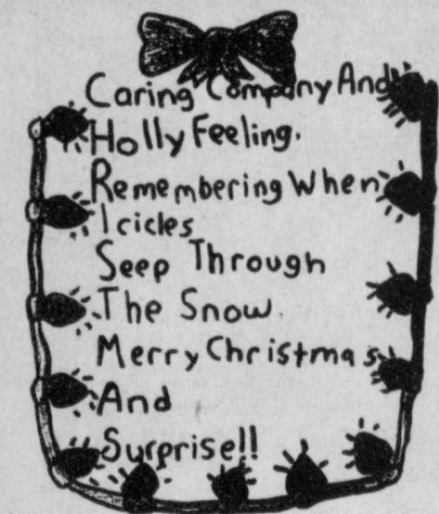 Caring Company And
Holly Feeling.
Remembering When
Icicles
Seep Through
The Snow.
Merry Christmas
And
Surprise!!